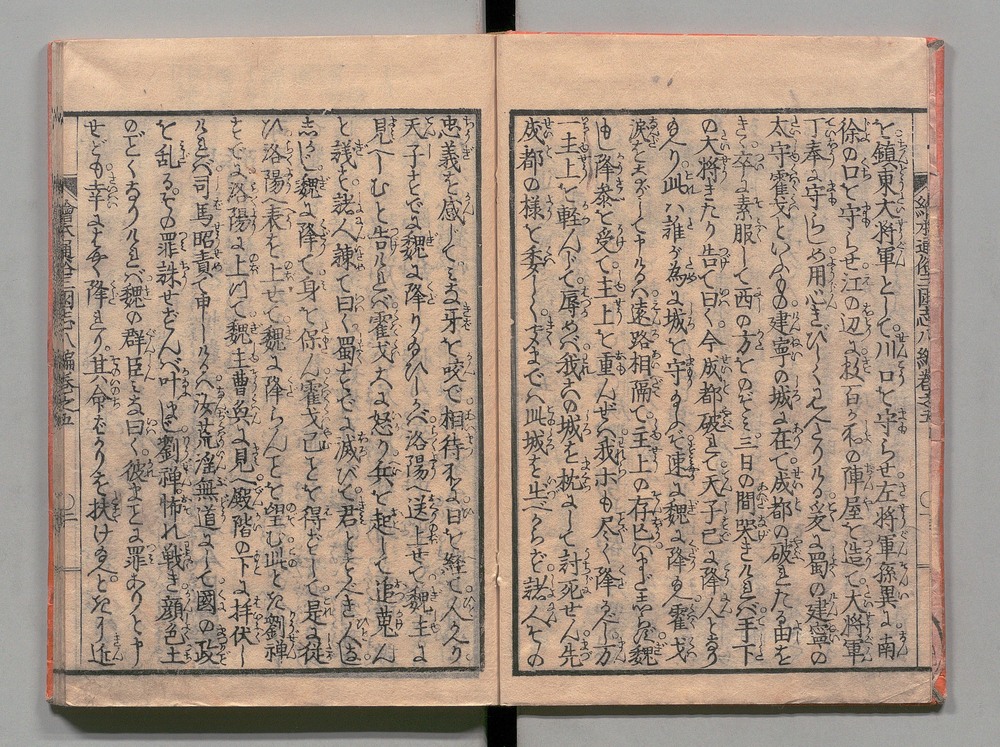 を鎮東大将軍として川口を守らせ左将軍孫異は南
徐の口を守らせ江の辺は数百ケ所の陣屋を造て大将軍
丁奉に守らしめ用心きびしく見へたりける爰に蜀の建寧の
太守霍戈といふもの建寧の城に在て成都の破れたる由を
きく卒に素服して西の方をのぞみ三日の間哭きければ手下
の大将きたり告て曰く今成都破れて天子已に降人となり
玉へり此は誰が為に城を守るや速に魏に降玉へ霍戈
涙をながして申けるは遠路相隔て王上の存亡いまだ志らず魏
もし降参を受て主上を重んぜば我等も尽く降べし万
一主上を軽んじて辱めば我此の城を枕にして討死せん先
成都の様を委しくきくまでは此城を出べからず諸人その
忠義を感じてみな牙を咬で相待ける日を経て人かへり
天子すでに魏に降り玉ひしかば洛陽へ送上せて魏主に
見へしむと告ければ霍戈大に怒り兵を起して追奪ん
と議す諸人諫て曰く蜀すでに滅びて君とすべき人なし
志かじ魏に降て身を保ん霍戈已ことを得ずして是に従
ひ洛陽へ表を上せて魏に降らんことを望む此とき劉禅
すでに洛陽に上けて魏主曹奐に見へ殿階の下に拝伏し
ければ司馬昭責て申しけるは汝荒淫無道にして國の政
を乱る其の罪誅せずんば叶はじ劉禅怖れ戦き顔色土
のごとくなりければ魏の群臣みな曰く彼まことに罪ありと申
せども幸に早く降れり其命ばかりを扶け玉へとあり近
繪本通俗三國志八編巻之五
繪本通俗三國志八編巻之五
〇二